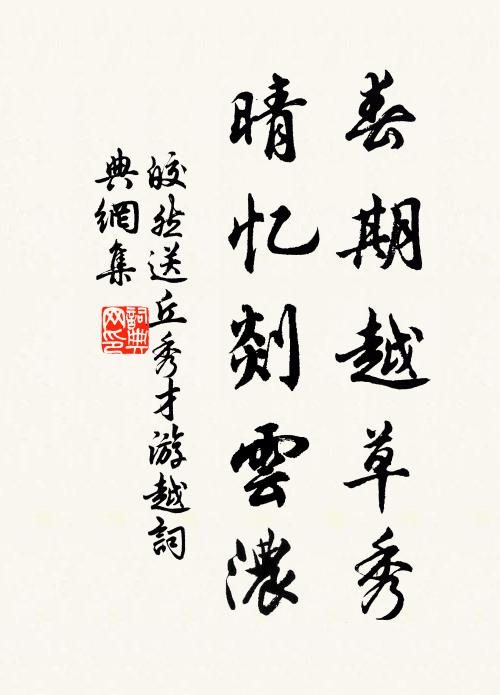 春期越草秀
晴忆剡雲濃
皎然送丘秀才游越詞
典網集
詞典网印